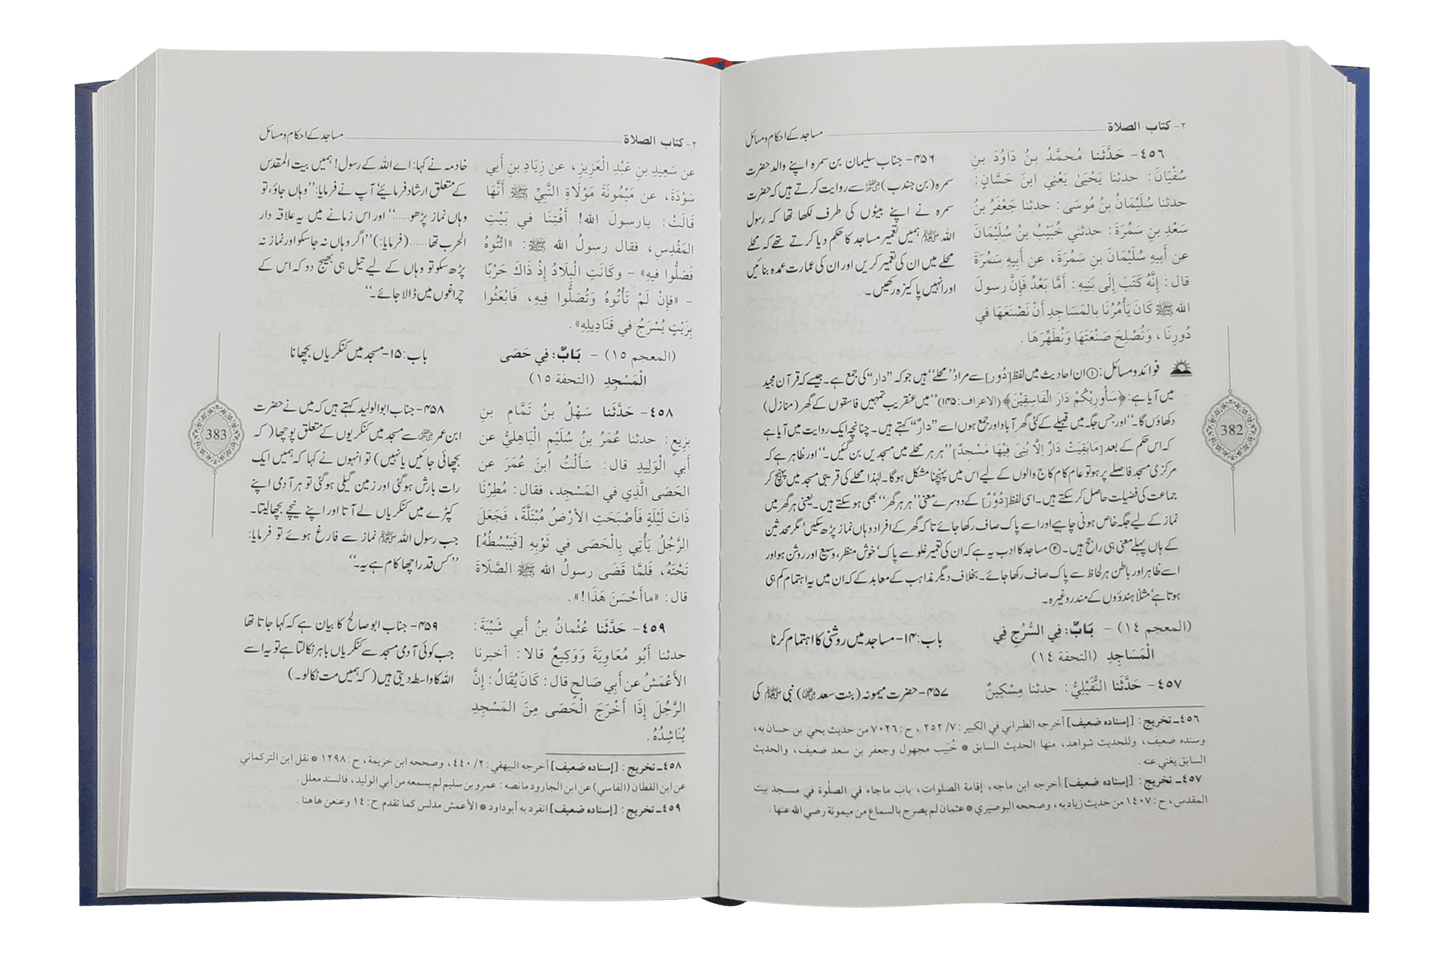 ٢- كتاب الصلاة
مساجد کے احکام و مسائل
٤٥٦- حَدَّثَنا مُحَمَّدُ بنُ دَاوُدَ بنِ
سُفْيَانَ: حدثنا يَحْيَىٰ يَعْني ابنَ حَسَّانَ:
حدثنا سُلَيْمَانُ بنُ مُوسَى: حدثنا جَعْفَرُ بنُ
سَعْدِ بنِ سَمُرَةَ: حدثني خُبَيْبُ بنُ سُلَيْمَانَ
عن أبِيهِ سُلَيْمَانَ بنِ سَمُرَةَ، عن أَبِيهِ سَمُرَةَ
قال: إنَّهُ كَتَبَ إلَى بَنِيهِ: أمَّا بَعْدُ فَإنَّ رسولَ
الله ﷺ كَانَ يَأْمُرُنَا بالمَسَاجِدِ أنْ نَصْنَعَهَا في
دُورِنَا، وَنُصْلِحَ صَنْعَتَهَا وَنُطَهِّرَهَا.
۴۵۶- جناب سلیمان بن سمرہ اپنے والد حضرت
سمرہ (بن جندب) ؓ سے روایت کرتے ہیں کہ حضرت
سمرہ نے اپنے بیٹوں کی طرف لکھا تھا کہ رسول
اللہ ﷺ ہمیں تعمیر مساجد کا حکم دیا کرتے تھے کہ محلے
محلے میں ان کی تعمیر کریں اور ان کی عمارت عمدہ بنائیں
اور انہیں پاکیزہ رکھیں۔
فوائد و مسائل: ① ان احادیث میں لفظ [دُور] سے مراد ”محلے“ ہیں جو کہ ”دار“ کی جمع ہے۔ جیسے کہ قرآن مجید
میں آیا ہے: ﴿سَأُورِيكُمْ دَارَ الْفَاسِقِينَ﴾ (الاعراف:۱۴۵) ”میں عنقریب تمہیں فاسقوں کے گھر (منازل)
دکھاؤں گا۔“ اور جس جگہ میں قبیلے کے کئی گھر آباد اور جمع ہوں اسے ”دار“ کہتے ہیں۔ چنانچہ ایک روایت میں آیا ہے
کہ اس حکم کے بعد [مَابَقِيَتْ دَارٌ إلَّا بُنِيَ فِيهَا مَسْجِدٌ] ”ہر ہر محلے میں مسجدیں بن گئیں۔“ اور ظاہر ہے کہ
مرکزی مسجد فاصلے پر ہو تو عام کام کاج والوں کے لیے اس میں پہنچنا مشکل ہوگا۔ لہٰذا محلے کی قریبی مسجد میں پہنچ کر
جماعت کی فضیلت حاصل کر سکتے ہیں۔ اسی لفظ [دُوْر] کے دوسرے معنی ”ہر ہر گھر“ بھی ہو سکتے ہیں۔ یعنی ہر گھر میں
نماز کے لیے جگہ خاص ہونی چاہیے اور اسے پاک صاف رکھا جائے تاکہ گھر کے افراد وہاں نماز پڑھ سکیں‘ مگر محدثین
کے ہاں پہلے معنی ہی راجح ہیں۔ ② مساجد کا ادب یہ ہے کہ ان کی تعمیر غلو سے پاک‘ خوش منظر، وسیع اور روشن ہو اور
اسے ظاہر اور باطن ہر لحاظ سے پاک صاف رکھا جائے۔ بخلاف دیگر مذاہب کے معابد کے کہ ان میں یہ اہتمام کم ہی
ہوتا ہے مثلاً ہندوؤں کے مندر وغیرہ۔
(المعجم ١٤) - بَابٌ: فِي السُّرُجِ فِي
الْمَسَاجِدِ (التحفة ١٤)
باب:۱۴- مساجد میں روشنی کا اہتمام کرنا
٤٥٧- حَدَّثَنا النُّفَيْلِيُّ: حدثنا مِسْكِينٌ
۴۵۷- حضرت میمونہ (بنت سعد ؓ) نبی ﷺ کی
٤٥٦ـ تخريج: [إسناده ضعيف] أخرجه الطبراني في الكبير: ٧/ ٢٥٢، ح:٧٠٢٦ من حديث يحيى بن حسان به،
وسنده ضعيف، وللحديث شواهد، منها الحديث السابق * خُبَيب مجهول وجعفر بن سعد ضعيف، والحديث
السابق يغني عنه.
٤٥٧ـ تخريج: [إسناده ضعيف] أخرجه ابن ماجه، إقامة الصلوات، باب ماجاء في الصلٰوة في مسجد بيت
المقدس، ح:١٤٠٧ من حديث زياد به، وصححه البوصيري * عثمان لم يصرح بالسماع من ميمونة رضي الله عنها.
382
٢- كتاب الصلاة
مساجد کے احکام و مسائل
عن سَعِيدِ بنِ عَبْدِ الْعَزِيزِ، عن زِيَادِ بنِ أبي
سَوْدَةَ، عن مَيْمُونَةَ مَوْلَاةِ النَّبيِّ ﷺ أنَّهَا
قَالَتْ: يارسولَ الله! أفْتِنَا في بَيْتِ
المَقْدِسِ، فقال رسولُ الله ﷺ: «ائْتُوهُ
فَصَلُّوا فيهِ» - وَكَانَتِ الْبِلَادُ إذْ ذَاكَ حَرْبًا
- «فإنْ لَمْ تَأْتُوهُ وَتُصَلُّوا فِيهِ، فَابْعَثُوا
بِزَيْتٍ يُسْرَجُ في قَنَادِيلِهِ».
خادمہ نے کہا: اے اللہ کے رسول! ہمیں بیت المقدس
کے متعلق ارشاد فرمائیے؟ آپ نے فرمایا: ”وہاں جاؤ، تو
وہاں نماز پڑھو.....“ اور اس زمانے میں یہ علاقہ دار
الحرب تھا...... (فرمایا:) ”اگر وہاں نہ جا سکو اور نماز نہ
پڑھ سکو تو وہاں کے لیے تیل ہی بھیج دو کہ اس کے
چراغوں میں ڈالا جائے۔“
(المعجم ١٥) - بَابٌ: فِي حَصَى
الْمَسْجِدِ (التحفة ١٥)
باب:۱۵- مسجد میں کنکریاں بچھانا
٤٥٨- حَدَّثَنا سَهْلُ بنُ تَمَّامِ بنِ
بَزِيعٍ: حدثنا عُمَرُ بنُ سُلَيْمٍ الْبَاهِلِيُّ عن
أبي الْوَلِيدِ قال: سَأَلْتُ ابنَ عُمَرَ عن
الحَصَى الَّذِي في المَسْجِدِ، فقال: مُطِرْنَا
ذَاتَ لَيْلَةٍ فَأَصْبَحَتِ الأرْضُ مُبْتَلَّةً، فَجَعَلَ
الرَّجُلُ يَأْتِي بِالْحَصَى في ثَوْبِهِ [فَيَبْسُطُهُ]
تَحْتَهُ، فَلمَّا قَضَى رسولُ الله ﷺ الصَّلَاةَ
قال: «ماأَحْسَنَ هَذَا!».
۴۵۸- جناب ابوالولید کہتے ہیں کہ میں نے حضرت
ابن عمر ؓ سے مسجد میں کنکریوں کے متعلق پوچھا (کہ
بچھائی جائیں یا نہیں) تو انہوں نے کہا کہ ہمیں ایک
رات بارش ہوگئی اور زمین گیلی ہوگئی تو ہر آدمی اپنے
کپڑے میں کنکریاں لے آتا اور اپنے نیچے بچھا لیتا۔
جب رسول اللہ ﷺ نماز سے فارغ ہوئے تو فرمایا:
”کس قدر اچھا کام ہے یہ۔“
٤٥٩- حَدَّثَنا عُثْمانُ بنُ أبي شَيْبَةَ:
حدثنا أبُو مُعَاوِيَةَ وَوَكِيعٌ قالا: أخبرنا
الأعْمَشُ عن أبي صَالحٍ قال: كَانَ يُقَالُ: إنَّ
الرَّجُلَ إذَا أخْرَجَ الْحَصَى مِنَ المَسْجِدِ
يُنَاشِدُهُ.
۴۵۹- جناب ابوصالح کا بیان ہے کہ کہا جاتا تھا
جب کوئی آدمی مسجد سے کنکریاں باہر نکالتا ہے تو یہ اسے
اللہ کا واسطہ دیتی ہیں (کہ ہمیں مت نکالو۔)
٤٥٨ـ تخريج: [إسناده ضعيف] أخرجه البيهقي: ٢/ ٤٤٠، وصححه ابن خزيمة، ح:١٢٩٨ * نقل ابن التركماني
عن ابن القطان (الفاسي) عن ابن الجارود مانصه: عمرو بن سليم لم يسمعه من أبي الوليد، فالسند معلل.
٤٥٩ـ تخريج: [إسناده ضعيف] انفرد به أبوداود * الأعمش مدلس كما تقدم ح:١٤ وعنعن هاهنا.
383